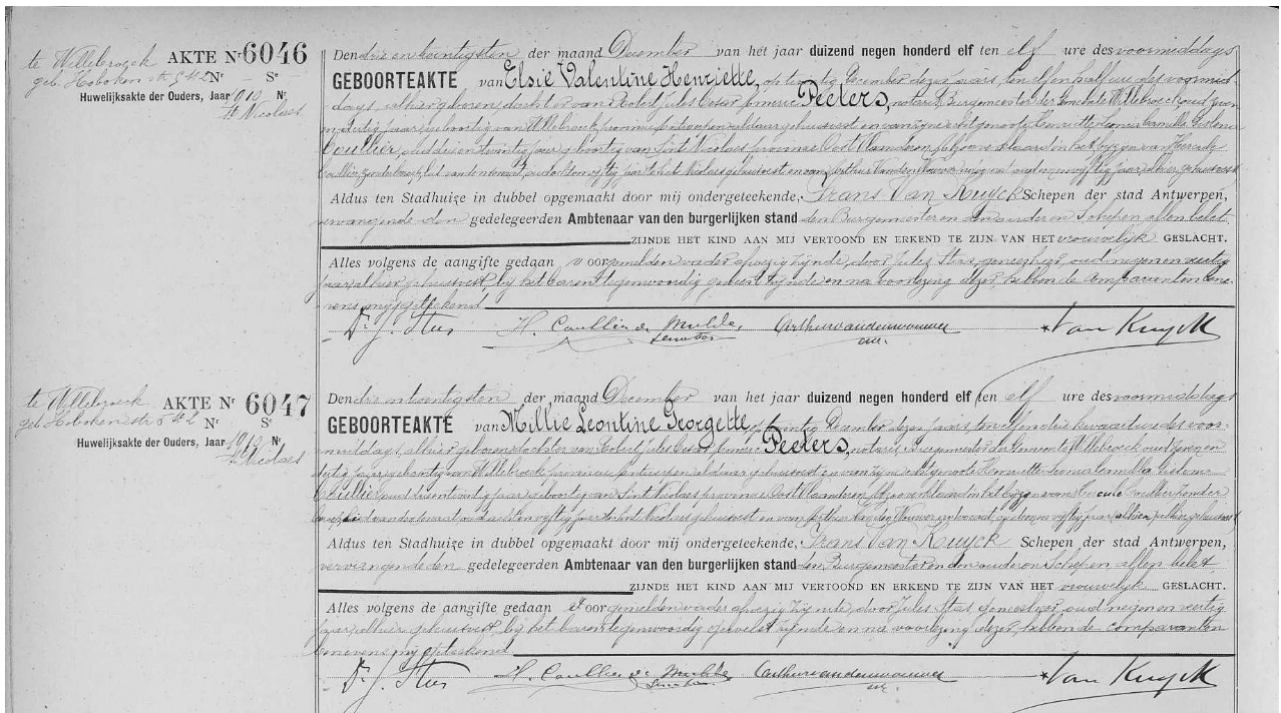 te Willebroeck AKTE Nr 6046
geb. Hoboken str 5 W. 2 Nr - Sr
Huwelijksakte der Ouders, Jaar 1910 Nr
St Nicolaes
Den drie en twintigsten der maand December van het jaar duizend negen honderd elf ten elf ure des voormiddags
GEBOORTEAKTE van Elsie Valentine Henriette, op twintig December dezes jaars, ten elf en half ure des voormid-
dags, alhier geboren, dochter van Jules Cesar Peeters, notaris, Burgemeester der Gemeente Willebroeck oud zeven
en dertig jaar geboortig van Willebroeck, provincie Antwerpen aldaar gehuisvest en van zyne echtgenoote Henriette Camilla
Coullier, oud drie en twintig jaar, geboortig van Sint Nicolaes provincie Oost Vlaanderen, bijgestaan in het byzyn van
Coullier, Senaat, oud vyftig jaar te Sint Nicolaes gehuisvest en van Arthur Vanden Wouwer oud vyftig jaar alhier gehuisvest
Aldus ten Stadhuize in dubbel opgemaakt door mij ondergeteekende, Frans Van Kuyck Schepen der stad Antwerpen,
vervangende den gedelegeerden Ambtenaar van den burgerlijken stand den Burgemeester en den anderen Schepen allen belet
ZIJNDE HET KIND AAN MIJ VERTOOND EN ERKEND TE ZIJN VAN HET vrouwelyk GESLACHT.
Alles volgens de aangifte gedaan voorgemelden vader afwezig zynde, door Jules Stas, geneesheer, oud negen en veertig
jaar, alhier gehuisvest, by het baren tegenwoordig geweest zynde en na voorlezing dezer, hebben de comparanten bene-
vens my geteekend
Dr J. Stas H. Coullier de Mulder Arthur vanden wouwer Van Kuyck
Senateur
te Willebroeck AKTE Nr 6047
geb. Hoboken str 5 W. 2 Nr Sr
Huwelijksakte der Ouders, Jaar 1910 Nr
St Nicolaes
Den drie en twintigsten der maand December van het jaar duizend negen honderd elf ten elf ure des voormiddags
GEBOORTEAKTE van Millie Leontine Georgette, op twintig December dezes jaars, ten elf en drie kwaart ure des voor-
middags, alhier geboren, dochter van Jules Cesar Peeters, notaris, Burgemeester der Gemeente Willebroeck oud zeven en
dertig jaar geboortig van Willebroeck provincie Antwerpen aldaar gehuisvest en van zyne echtgenoote Henriette Camilla
Coullier, oud drie en twintig jaar, geboortig van Sint Nicolaes provincie Oost Vlaanderen, in het byzyn van Coullier zonder
oud vyftig jaar te Sint Nicolaes gehuisvest en van Arthur Vanden Wouwer oud vyftig jaar alhier gehuisvest
Aldus ten Stadhuize in dubbel opgemaakt door mij ondergeteekende, Frans Van Kuyck Schepen der stad Antwerpen,
vervangende den gedelegeerden Ambtenaar van den burgerlijken stand den Burgemeester en den anderen Schepen allen belet
ZIJNDE HET KIND AAN MIJ VERTOOND EN ERKEND TE ZIJN VAN HET vrouwelyk GESLACHT.
Alles volgens de aangifte gedaan voorgemelden vader afwezig zynde, door Jules Stas, geneesheer, oud negen en veertig
jaar, alhier gehuisvest, by het baren tegenwoordig geweest zynde en na voorlezing dezer, hebben de comparanten
benevens my geteekend
Dr J. Stas H. Coullier de Mulder Arthur vanden wouwer Van Kuyck
Senateur